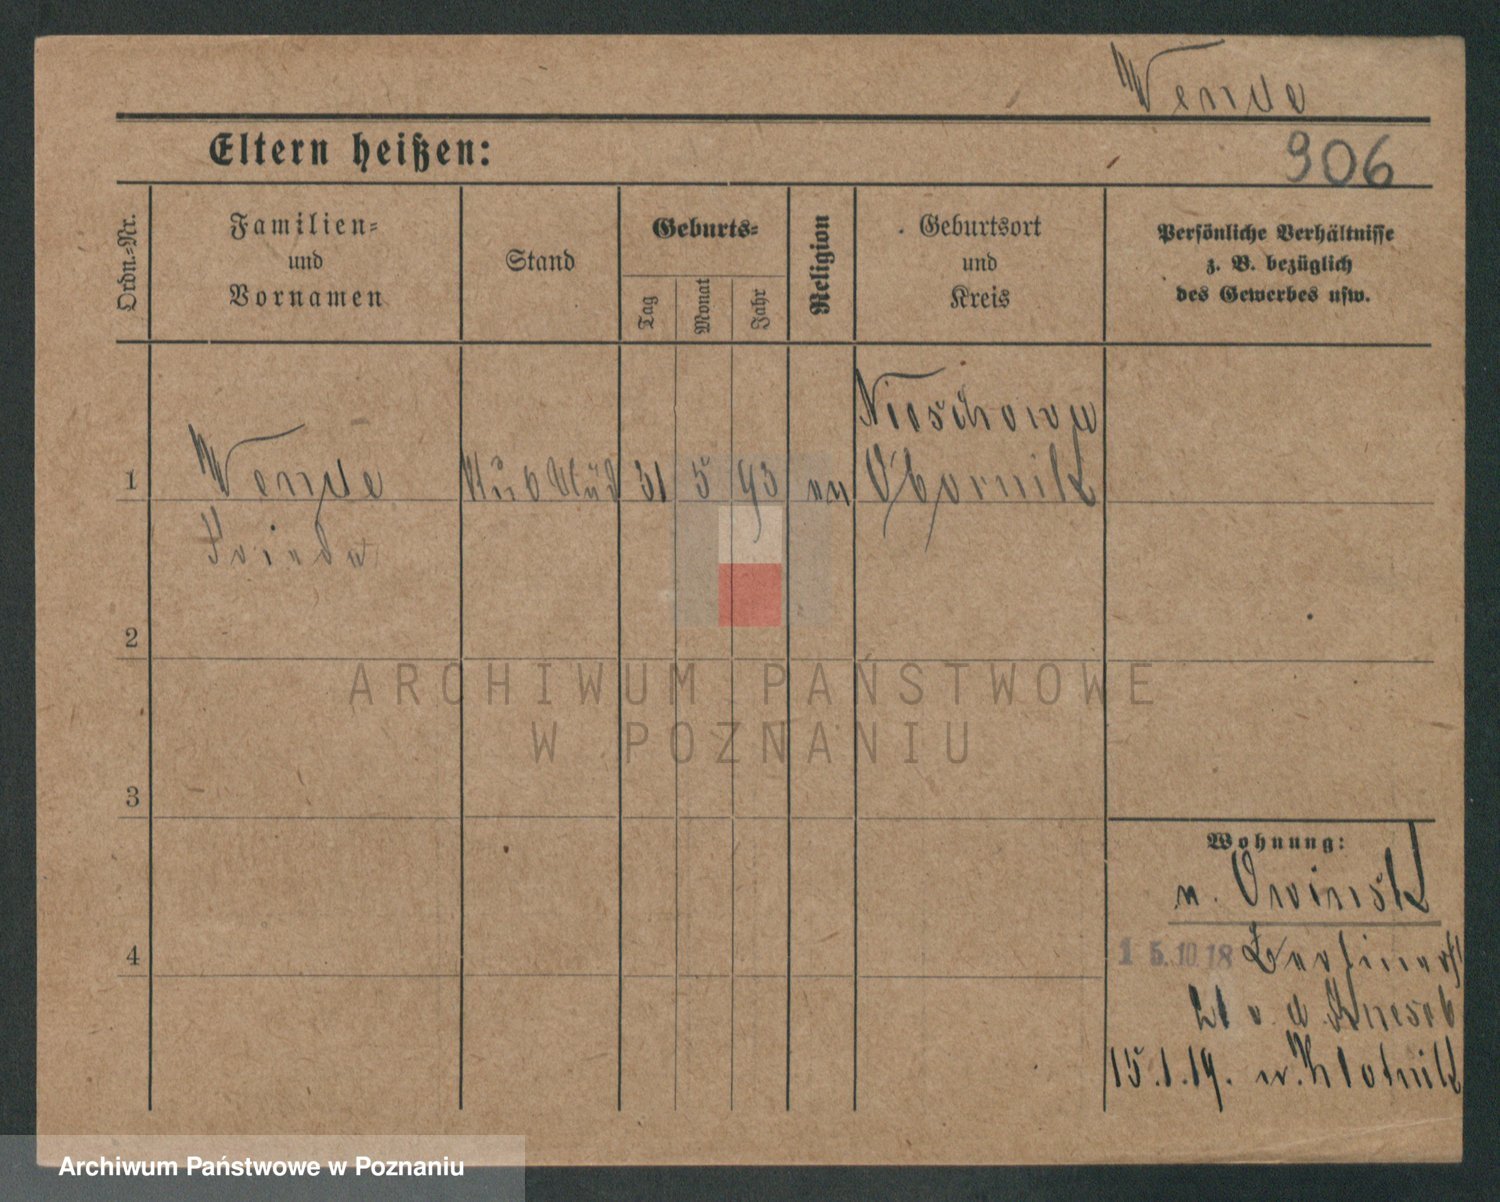 Wende
Eltern heißen:
906
Ordn.-Nr.
Familien-
und
Vornamen
Stand
Geburts-
Tag
Monat
Jahr
Religion
Geburtsort
und
Kreis
Persönliche Verhältnisse
z. B. bezüglich
des Gewerbes usw.
1
Wende
Frieda
31 5 93
Obornik
2
3
4
Wohnung:
n. Owinsk
15.10.18 Berliner
21 v. d.
15.1.19.
ARCHIWUM PAŃSTWOWE
W POZNANIU
Archiwum Państwowe w Poznaniu